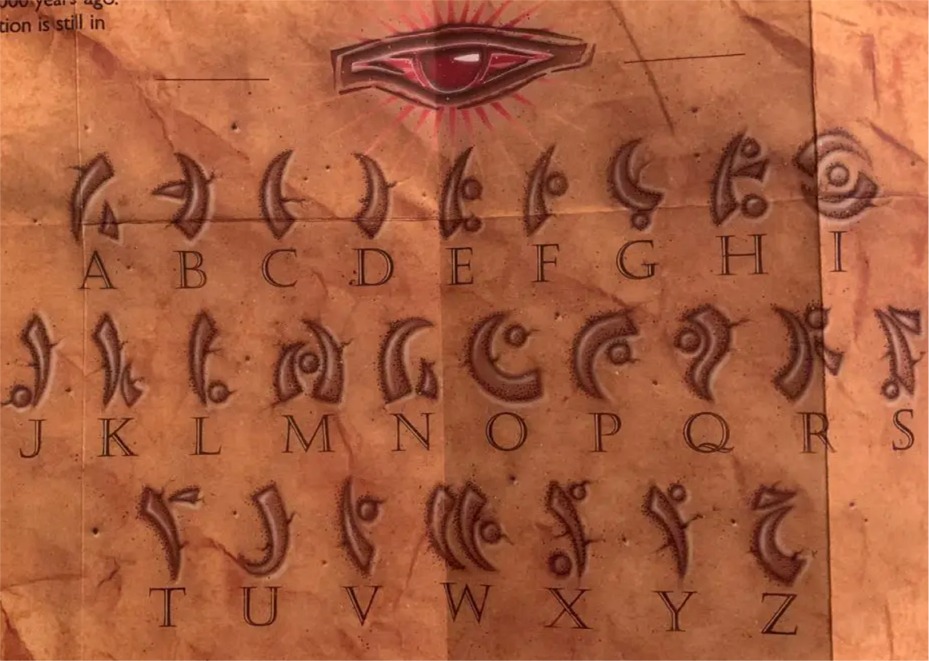 years ago.
tion is still in
A B C D E F G H I
J K L M N O P Q R S
T U V W X Y Z